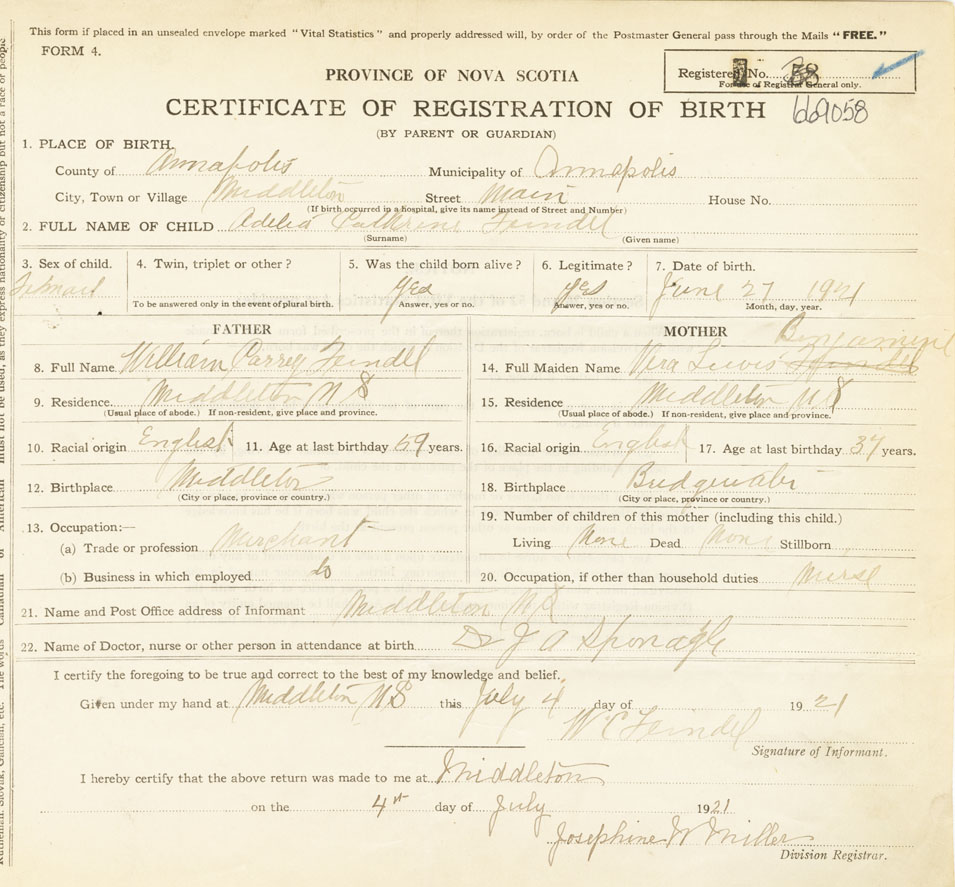 This form if placed in an unsealed envelope marked "Vital Statistics" and properly addressed will, by order of the Postmaster General pass through the Mails "FREE."
FORM 4.
PROVINCE OF NOVA SCOTIA
Registered No. 58
For use of Registrar General only.
CERTIFICATE OF REGISTRATION OF BIRTH 669058
(BY PARENT OR GUARDIAN)
1. PLACE OF BIRTH.
County of Annapolis Municipality of Annapolis
City, Town or Village Middleton Street Main House No.
(If birth occurred in a hospital, give its name instead of Street and Number)
2. FULL NAME OF CHILD Adelia Catherine Feindel
(Surname) (Given name)
3. Sex of child. 4. Twin, triplet or other? 5. Was the child born alive? 6. Legitimate? 7. Date of birth.
Female yes yes June 27 1921
To be answered only in the event of plural birth. Answer, yes or no. Answer, yes or no. Month, day, year.
FATHER MOTHER
8. Full Name William Feindel
14. Full Maiden Name Vera Lewis Benjamine
9. Residence Middleton NS
15. Residence Middleton NS
(Usual place of abode.) If non-resident, give place and province.
(Usual place of abode.) If non-resident, give place and province.
10. Racial origin English 11. Age at last birthday 59 years.
16. Racial origin English 17. Age at last birthday 37 years.
12. Birthplace Middleton
18. Birthplace Bridgewater
(City or place, province or country.)
(City or place, province or country.)
13. Occupation:—
(a) Trade or profession Merchant
(b) Business in which employed do
19. Number of children of this mother (including this child.)
Living None Dead None Stillborn
20. Occupation, if other than household duties nurse
21. Name and Post Office address of Informant Middleton NS
22. Name of Doctor, nurse or other person in attendance at birth Dr J A Sponagle
I certify the foregoing to be true and correct to the best of my knowledge and belief.
Given under my hand at Middleton NS this July 4 day of 1921
W C Feindel
Signature of Informant.
I hereby certify that the above return was made to me at Middleton
on the 4th day of July 1921
Josephine W Miller
Division Registrar.